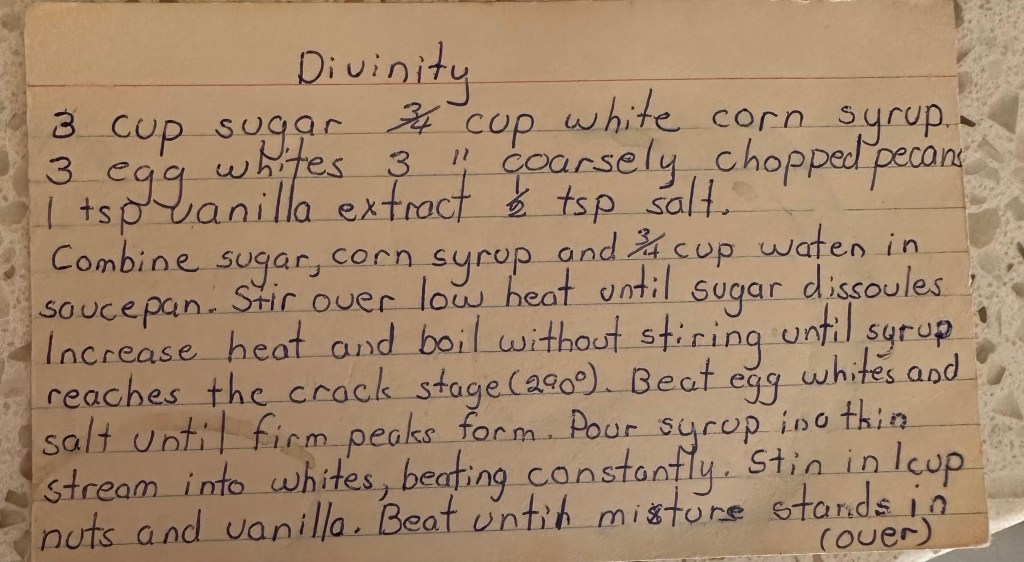 Divinity
3 cup sugar 3/4 cup white corn syrup.
3 egg whites 3 " coarsely chopped pecans
1 tsp vanilla extract 1/2 tsp salt.
Combine sugar, corn syrup and 3/4 cup water in
saucepan. Stir over low heat until sugar dissolves
Increase heat and boil without stiring until syrup
reaches the crack stage (290°). Beat egg whites and
salt until firm peaks form. Pour syrup in a thin
stream into whites, beating constantly. Stir in 1 cup
nuts and vanilla. Beat until mixture stands in
(over)